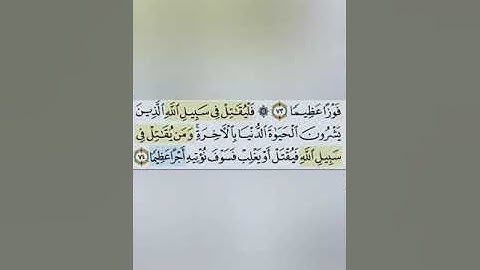 فَوْزًا عَظِيمًا ٧٣ ۞ فَلْيُقَـٰتِلْ فِى سَبِيلِ ٱللَّهِ ٱلَّذِينَ
يَشْرُونَ ٱلْحَيَوٰةَ ٱلدُّنْيَا بِٱلْـَٔاخِرَةِ ۚ وَمَن يُقَـٰتِلْ فِى
سَبِيلِ ٱللَّهِ فَيُقْتَلْ أَوْ يَغْلِبْ فَسَوْفَ نُؤْتِيهِ أَجْرًا عَظِيمًا ٧٤